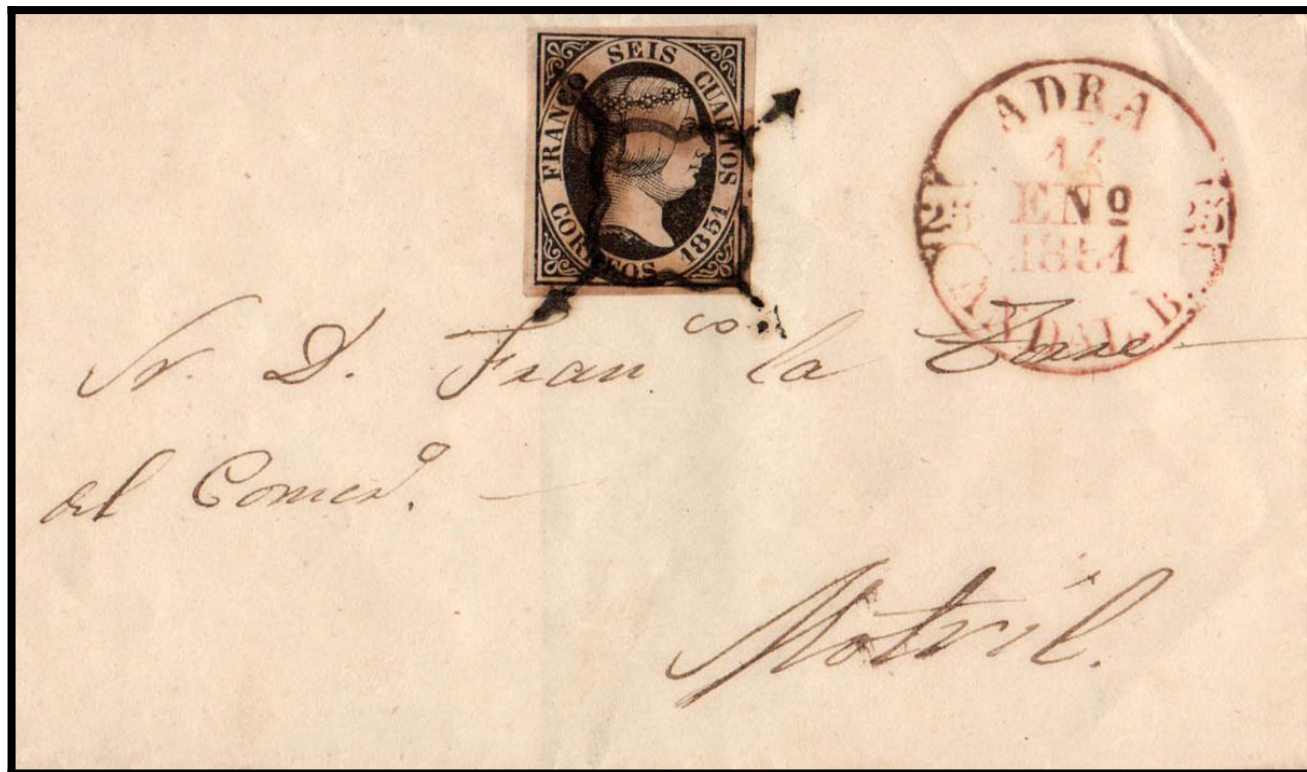 FRANCO SEIS CUARTOS
CORREOS 1851
ADRA
14
ENº
1851
25 25
ANDAL. B.
Sr. D. Franco. la Torre
del Comerº.
Motril.